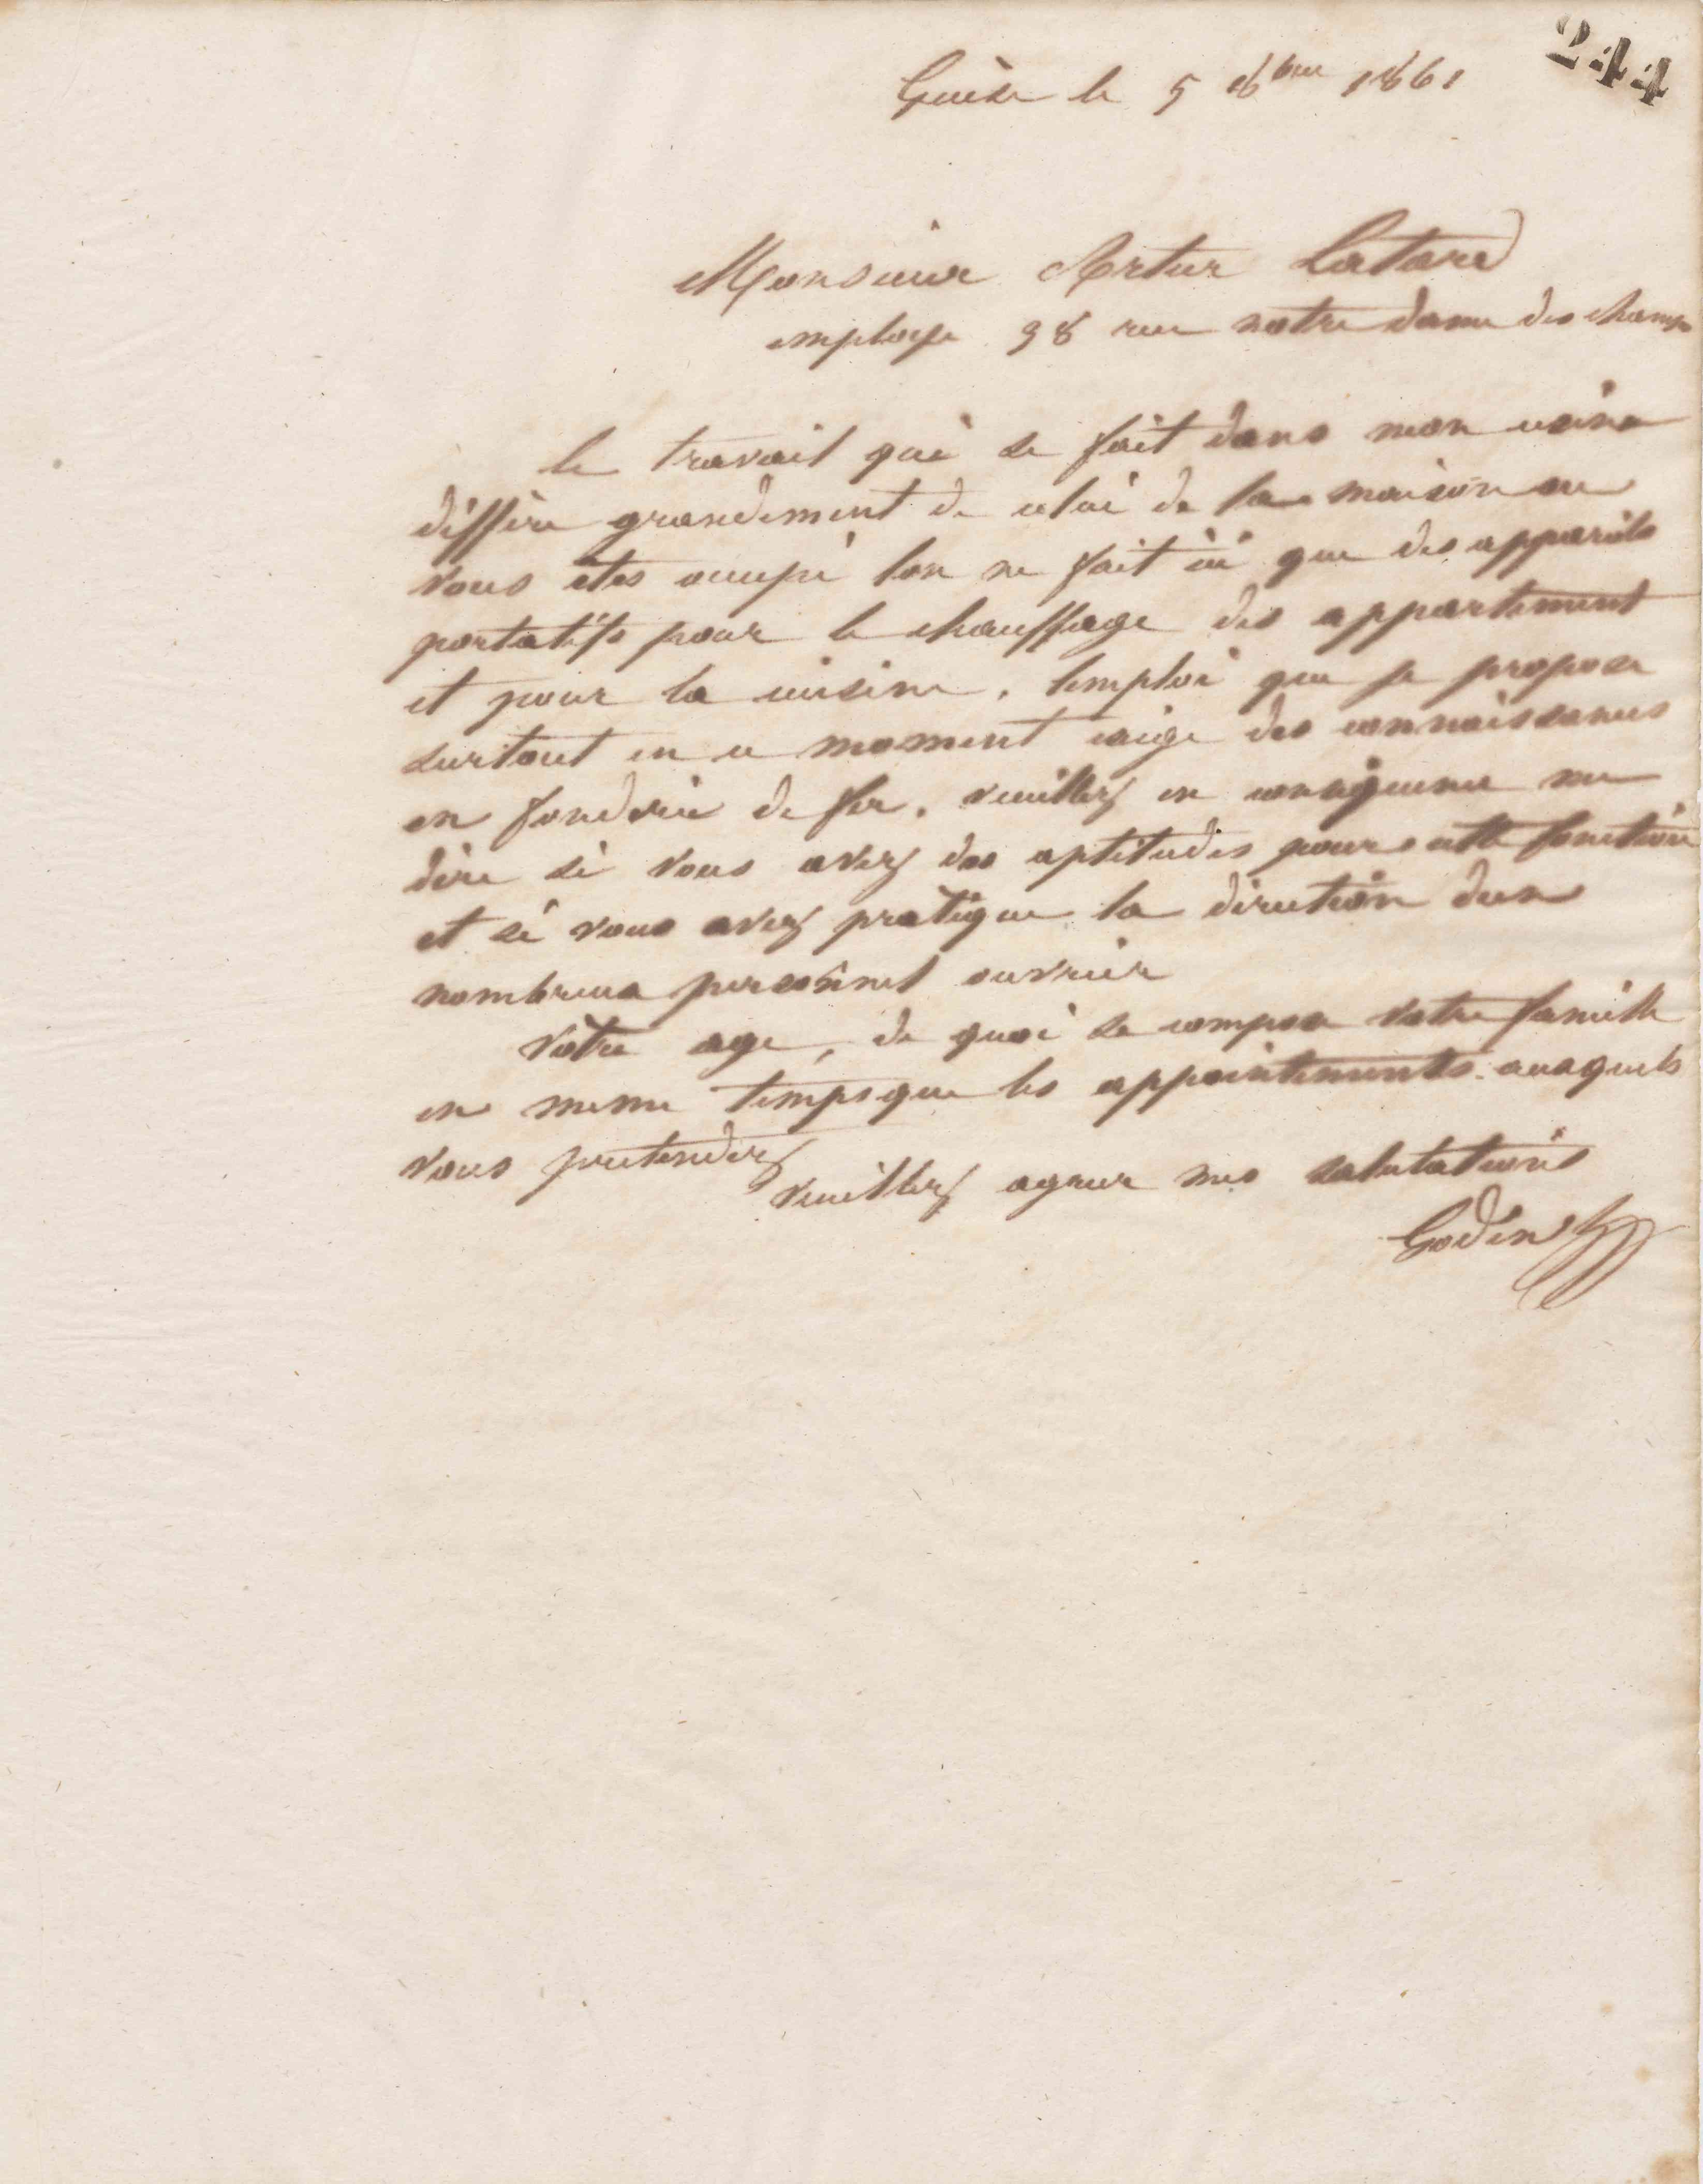 244
Guise le 5 8bre 1861
Monsieur Artur Latard
employe 98 rue notre dame des champs
le travail qui se fait dans mon usine
diffère grandement de celui de la maison ou
vous êtes occupé lon ne fait ici que des appareils
portatifs pour le chauffage des appartement
et pour la cuisine. lemploi que je propose
surtout en ce moment exige des connaissances
en fonderie de fer. veuillez en conséquence me
dire si vous avez des aptitudes pour cette fonction
et si vous avez pratique la direction dun
nombreux personnel ouvrier
votre age, de quoi se compose votre famille
en meme temps que les appointements auxquels
vous pretendez
veuillez agreer mes salutations
Godin